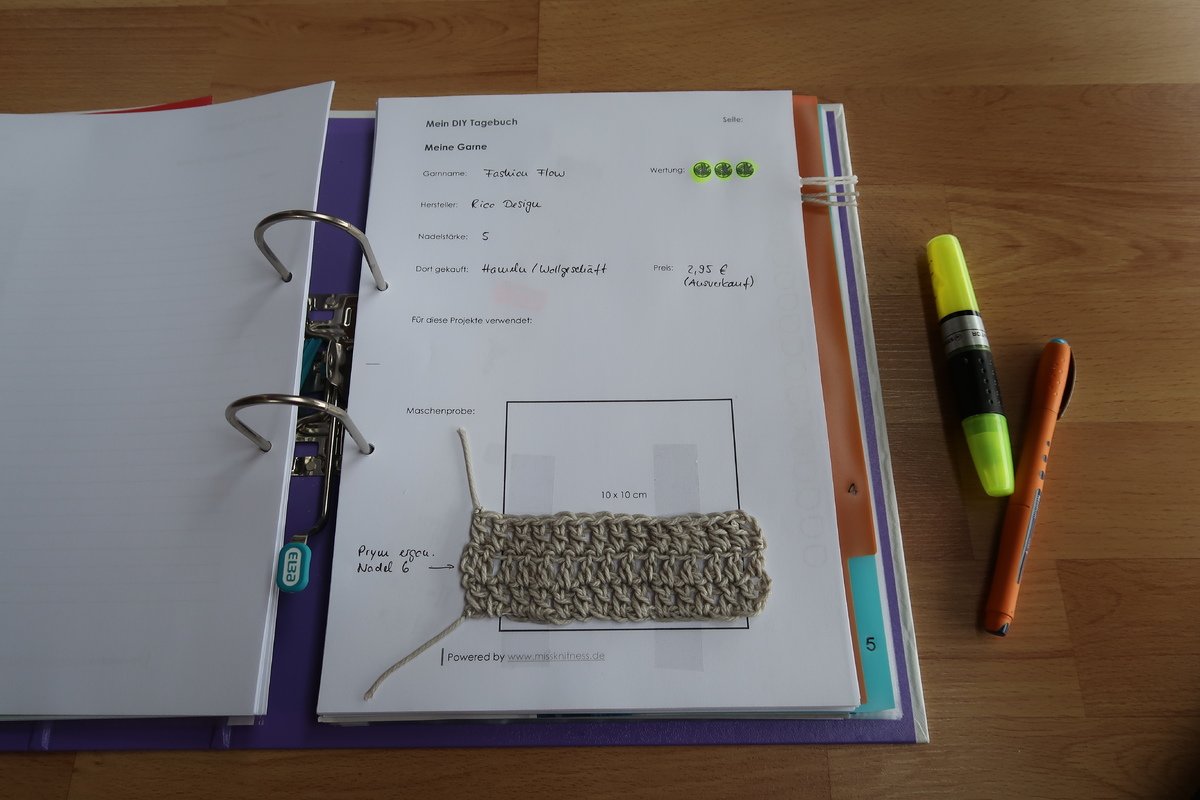 Mein DIY Tagebuch Seite:
Meine Garne
Garnname: Fashion Flow Wertung:
Hersteller: Rico Design
Nadelstärke: 5
Dort gekauft: Hameln / Wollgeschäft Preis: 2,95 €
(Ausverkauf)
Für diese Projekte verwendet:
Maschenprobe:
10 x 10 cm
Prym ergon.
Nadel 6
Powered by www.missknitness.de
4
5
ELBA